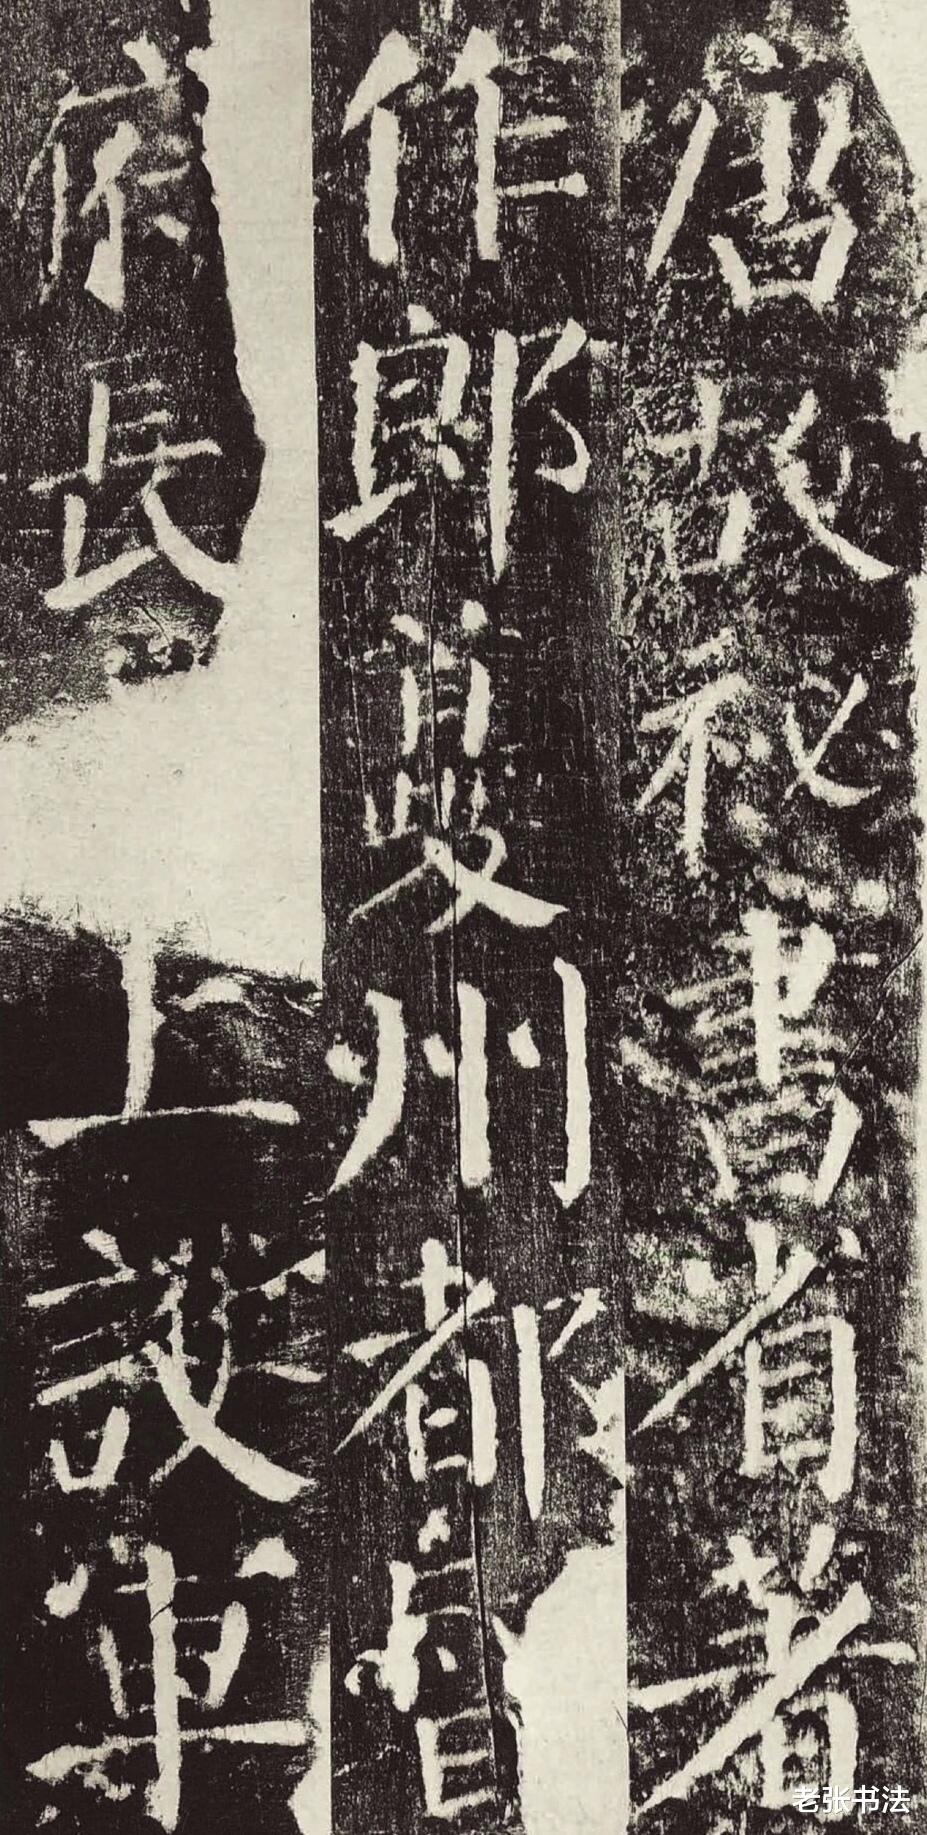 唐故祕書省著
作郎夔州都督
府長上護軍
老张书法